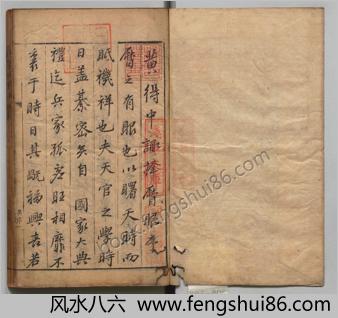 黄得中諏擇曆眼序
曆之有眼也以曙天時而
眂禨祥也夫天官之學時
日盖綦密矣自國家大典
禮迄兵家孤虛旺相靡不
叢于時日其眂福與𠮷若
www.fengshui86.com
风水八六 - www.fengshui86.com